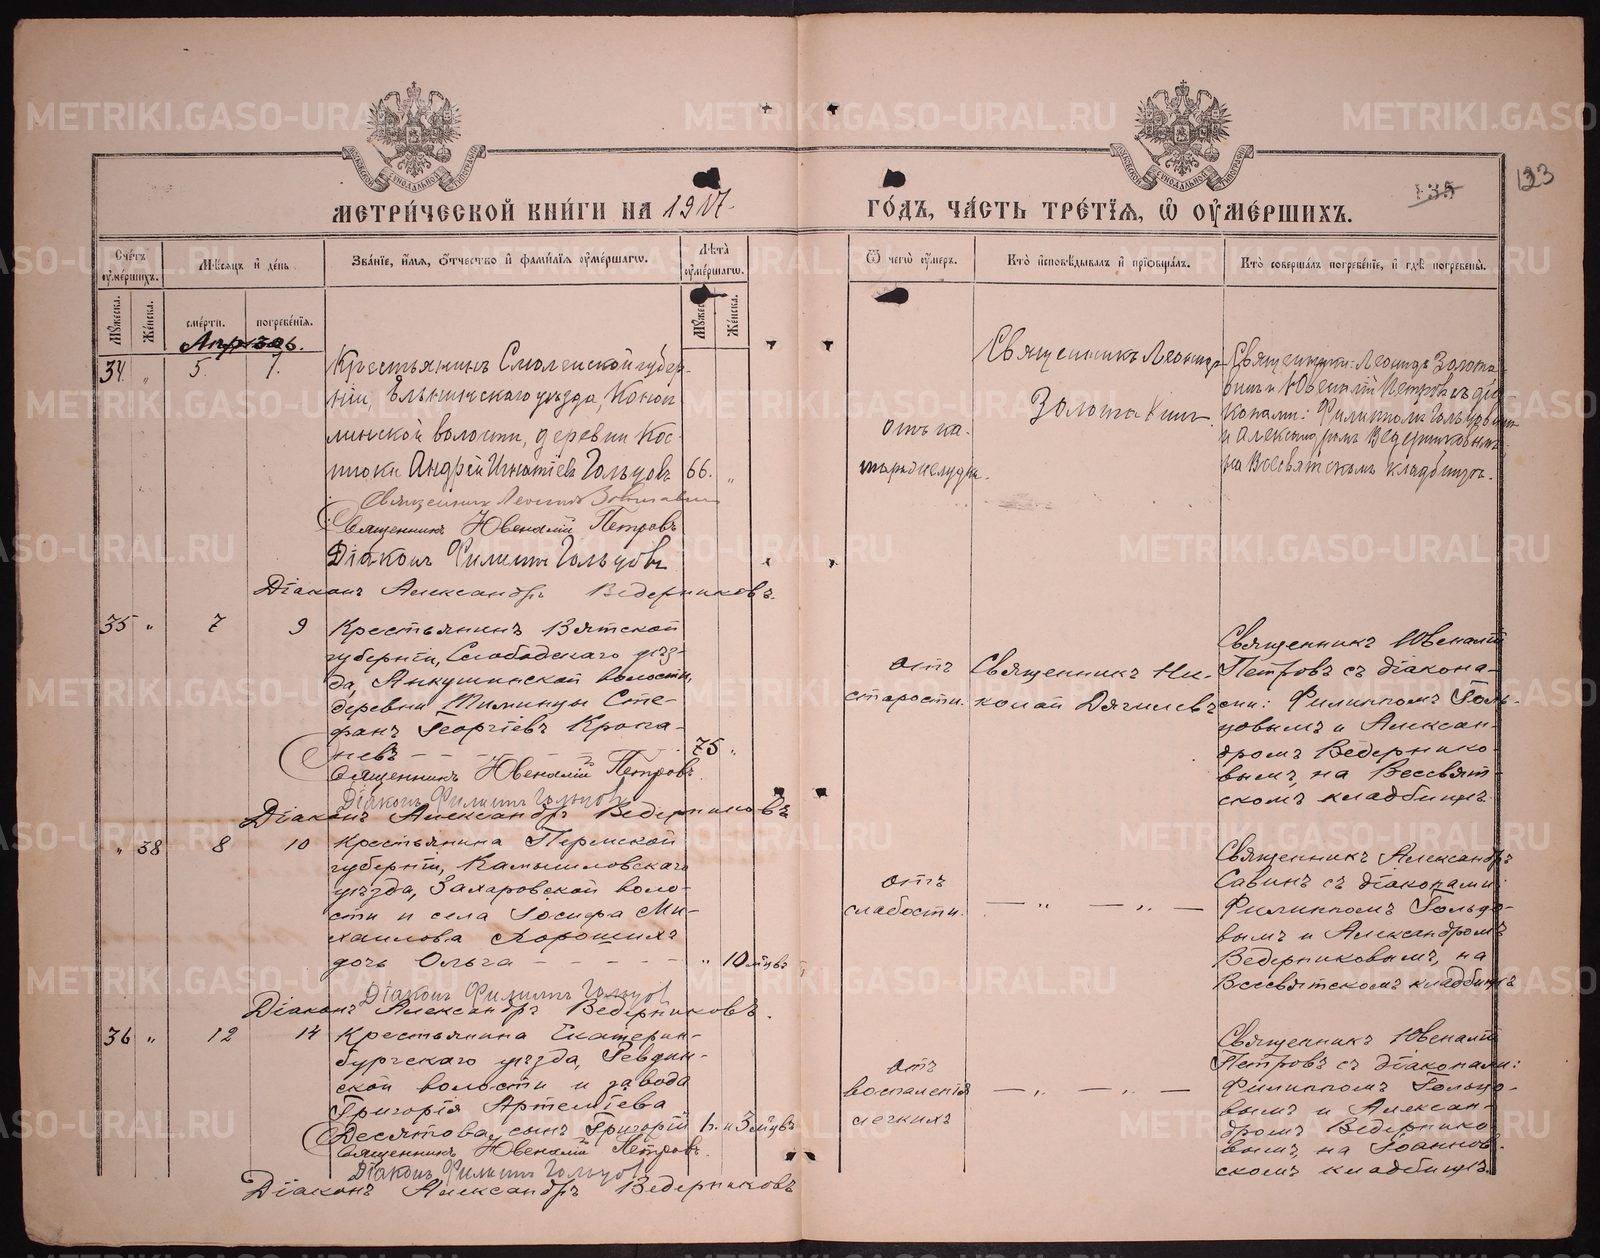 135
123
МЕТРИ́ЧЕСКОЙ КНИ́ГИ НА 1917.
ГО́ДЪ, ЧА́СТЬ ТРЕ́ТЇѦ, Ѡ҆ ОУ҆МЕ́РШИХЪ.
Сче́тъ оу҆ме́ршихъ.
Мѣ́сѧцъ и҆ де́нь.
Зва́нїе, и҆́мѧ, ѻ҆́тчество и҆ фами́лїѧ оу҆ме́ршагѡ.
Лѣ́та оу҆ме́ршагѡ.
Ѿ чегѡ̀ оу҆́меръ.
Кто̀ и҆сповѣ́дывалъ и҆ прїѡбща́лъ.
Кто̀ соверша́лъ погребе́нїе, и҆ гдѣ̀ погребены̀.
Мꙋ́жеска.
Же́нска.
сме́рти.
погребе́нїѧ.
Мꙋ́жес
Же́нска.
Апрѣль.
34. „ 5. 7.
Крестьянинъ Смоленской губер-
ніи, Ельнинскаго уѣзда,
волости, деревни Кос-
Андрей Игнатіевъ Гольцовъ 66. „
Священникъ Леонидъ
Священникъ Ювеналій Петровъ
Діаконъ Филиппъ Гольцовъ
Діаконъ Александръ Ведерниковъ.
отъ ка-
Священникъ Леонидъ
Священники: Леонидъ
и Ювеналій Петровъ съ діа-
конами: Филиппомъ Гольцовымъ
и Александромъ Ведерниковымъ
на Всесвятскомъ кладбищѣ.
35 „ 7 9
Крестьянинъ Вятской
губерніи, Слободскаго уѣз-
да, волости,
деревни Сте-
фанъ Георгіевъ
невъ 75 „
Священникъ Ювеналій Петровъ.
Діаконъ Филиппъ Гольцовъ
Діаконъ Александръ Ведерниковъ
отъ
старости.
Священникъ Ни-
колай Дягилевъ
Священникъ Ювеналій
Петровъ съ діакона-
ми: Филиппомъ Голь-
цовымъ и Алексан-
дромъ Ведернико-
вымъ, на Всесвят-
скомъ кладбищѣ.
„ 38 8 10
Крестьянина Пермской
губерніи, Камышловскаго
уѣзда, Захаровской воло-
сти и села Іосифа Ми-
хаилова Хорошихъ
дочь Ольга - - - - - „ 10 м-цѣвъ
Діаконъ Филиппъ Гольцовъ
Діаконъ Александръ Ведерниковъ.
отъ
слабости.
— „ — „ —
Священникъ Александръ
Савинъ съ діаконами:
Филиппомъ Гольцо-
вымъ и Александромъ
Ведерниковымъ, на
Всесвятскомъ кладбищѣ
36 „ 12 14
Крестьянина Екатерин-
бургскаго уѣзда, Ревдин-
ской волости и завода
Григорія Артеміева
Десятова, сынъ Григорій 1г. и 3 м-цѣвъ
Священникъ Ювеналій Петровъ.
Діаконъ Филиппъ Гольцовъ
Діаконъ Александръ Ведерниковъ
отъ
воспаленія
легкихъ
— „ — „ —
Священникъ Ювеналій
Петровъ съ діаконами:
Филиппомъ Гольцо-
вымъ и Алексан-
дромъ Ведернико-
вымъ, на Іоаннов-
скомъ кладбищѣ.
METRIKI.GASO-URAL.RU